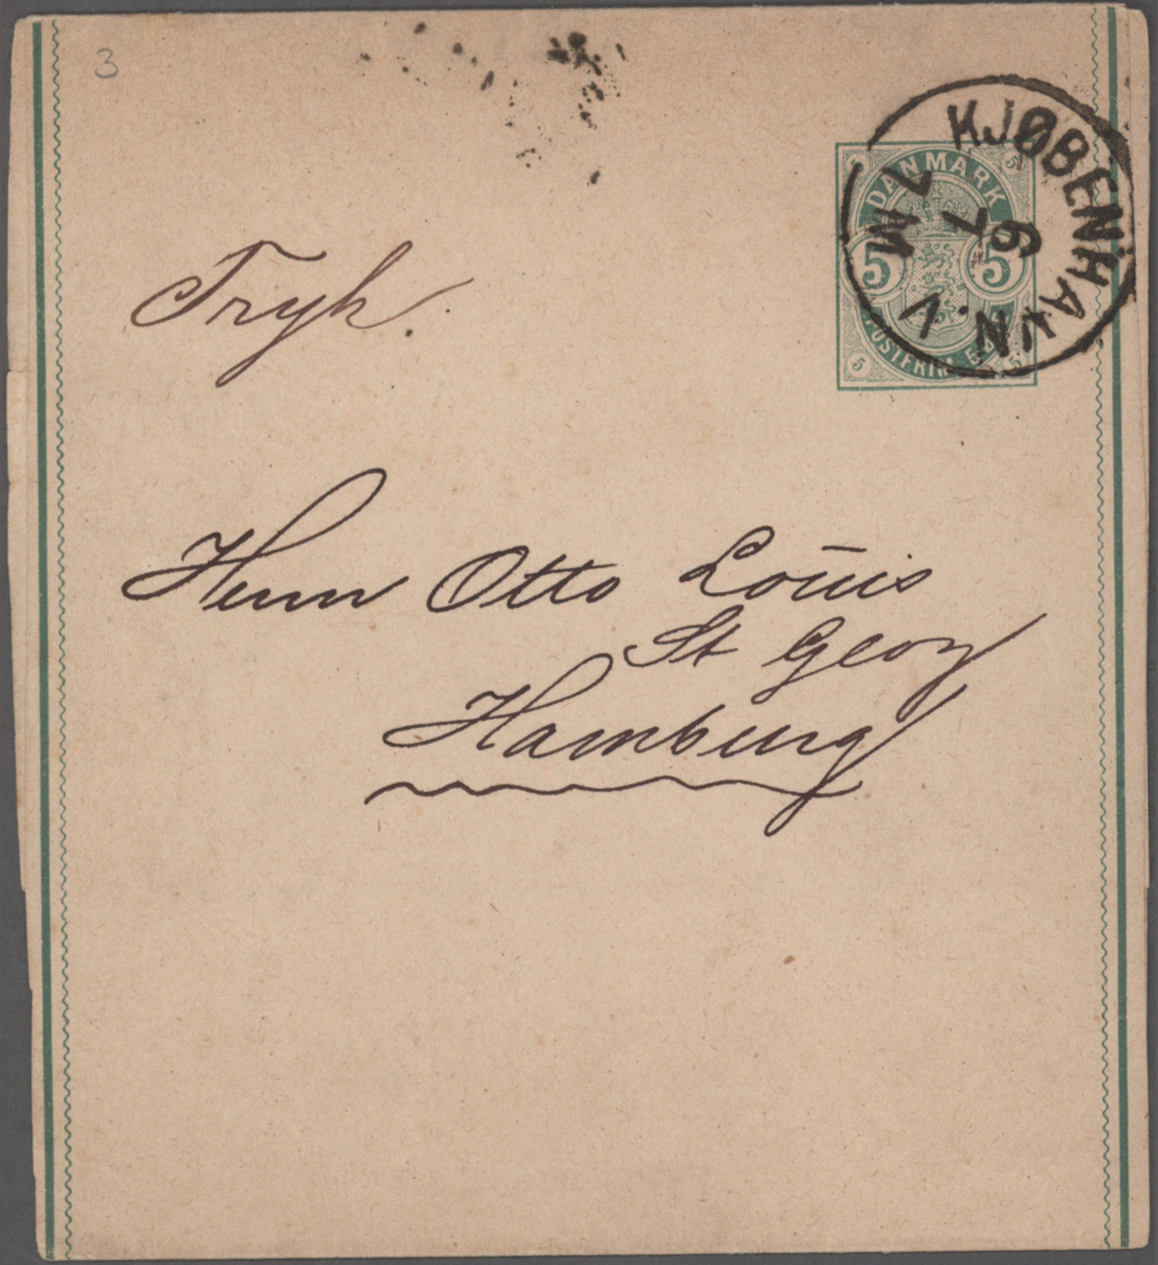 3
DANMARK
5 5
5 5
5 5
POSTFRIM.
KJØBENHAVN.V.
6
7
7 M
Tryk.
Herrn Otto Louis
St Georg
Hamburg